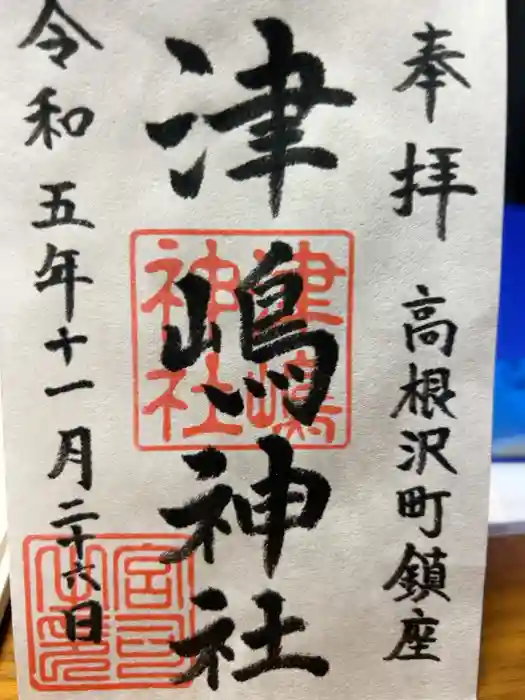 奉拝 高根沢町鎮座
津嶋神社
津嶋神社
令和五年十一月二十六日